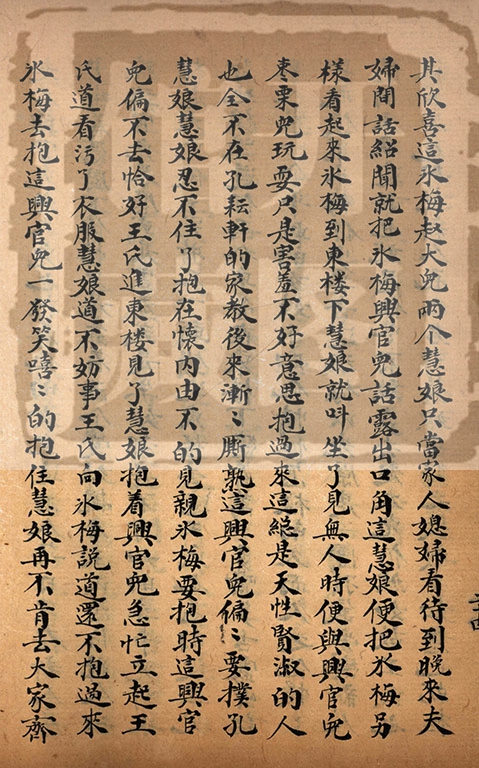 其欣喜這氷梅赵大兒兩个慧娘只當家人媳婦看待到晚來夫
婦間話紹聞就把氷梅興官兒話露出口角這慧娘便把氷梅另
樣看起來氷梅到東楼下慧娘就呌坐了見無人時便與興官兒
枣栗兒玩耍只是害羞不好意思抱過來這縂是天性賢淑的人
也全不在孔耘軒的家教後來漸〻厮熟這興官兒偏〻要撲孔
慧娘慧娘忍不住了抱在懷内由不的見親氷梅要抱時這興官
兒偏不去恰好王氏進東楼見了慧娘抱着興官兒急忙立起王
氏道看汚了衣服慧娘道不妨事王氏向氷梅説道還不抱過來
氷梅去抱這興官兒一發笑嘻〻的抱住慧娘再不肯去大家齊